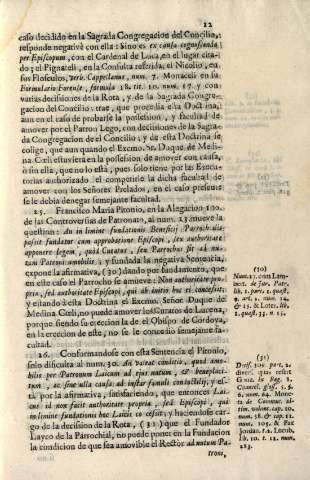 12
caso decidido en la Sagrada Congregacion del Concilio,
responde negativè con ella: Sino es ex causa cognoscenda
per Episcopum, con el Cardenal de Luca, en el lugar cita-
do y el Pignateli, en la Consulta referida, el Nicolio, en
sus Flosculos, verb. Cappellanus, num. 7. Monaceli en su
Formulario Forense, formula 18. tit. 10. num. 17. y con
varias decisiones de la Rota, y de la Sagrada Congre-
gacion del Concilio trae, que procedia esta Doctrina,
aun en el caso de probarse la possession, y facultad de
amover por el Patron Lego, con decisiones de la Sagra-
da Congregacion de el Concilio; y de esta Doctrina se
colige, que aun quando el Excmo. Sr. Duque de Medina
Cœli estuviera en la possession de amover con causa,
ò sin ella, que no lo está, pues solo tiene por las Execu-
torias authorizado el competirle la dicha facultad de
amover con los Señores Prelados, en el caso presente
se le debia denegar semejante facultad.
25. Francisco Maria Pitonio, en la Alegacion 100.
de las Controversias de Patronato, al num. 23. mueve la
question: An in limine fundationis Beneficij Parrochialis
possit fundator cum approbatione Episcopi, seu authoritate
apponere legem, quod Curatus, seu Parrochus sit ad nu-
tum Patroni amobilis, y fundada la negativa Sentencia,
expone la afirmativa, (30) dando por fundamento, que
en este caso el Parrocho se amueve: Non authoritate pro-
pria, sed authoritate Episcopi, qui ab initio hoc ei concessit;
y estando à esta Doctrina el Excmo. Señor Duque de
Medina Cœli, no puede amover los Curatos de Lucena,
porque siendo su ereccion la de el Obispo de Cordova,
en la ereccion de este, no se le concedió semejante fa-
cultad.
26. Conformandose con esta Sentencia el Pitonio,
solo dificulta al num. 30. An valeat conditio, quod amo-
bilis per Patronum Laicum ad ejus nutum, & beneplaci-
tum, ac sine ulla causa ad instar famuli conductitij; y está
por la afirmativa, satisfaciendo, que entonces Lai-
cus id non facit authoritate propria, sed Episcopi, qui
in limine fundationis hoc Laico concessit; y haciendose car-
go de la decision de la Rota, (31) que el Fundador
Layco de la Parrochial, no puede poner en la Fundacion
la condicion de que sea amovible el Rector ad nutum Pa-
troni,
(30)
Num. 27. con Lam-
bert. de jur. Patr.
lib. 1. part. 2. quæst.
9. art. 2. num. 14.
& 15. & Loter. lib.
1. quæst. 33. n. 15.
(31)